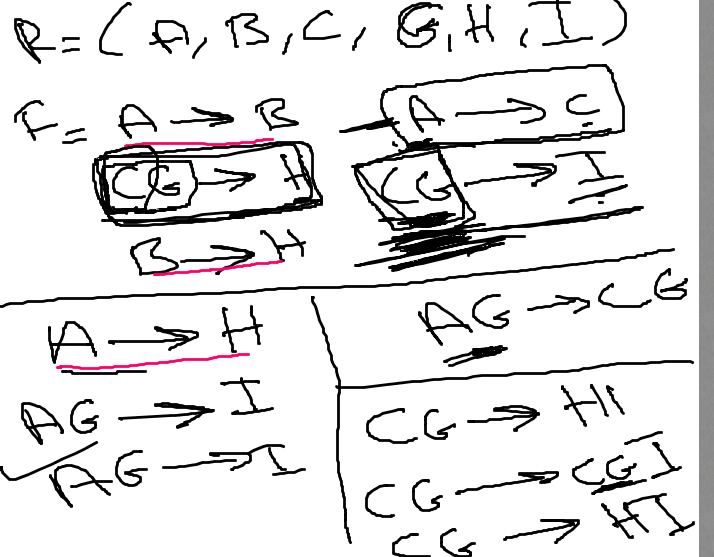 R = ( A, B, C, G, H, I )
F = A → B A → C
CG → H CG → I
B → H
A → H
AG → I
AG → I
AG → CG
CG → HI
CG → CGI
CG → HI